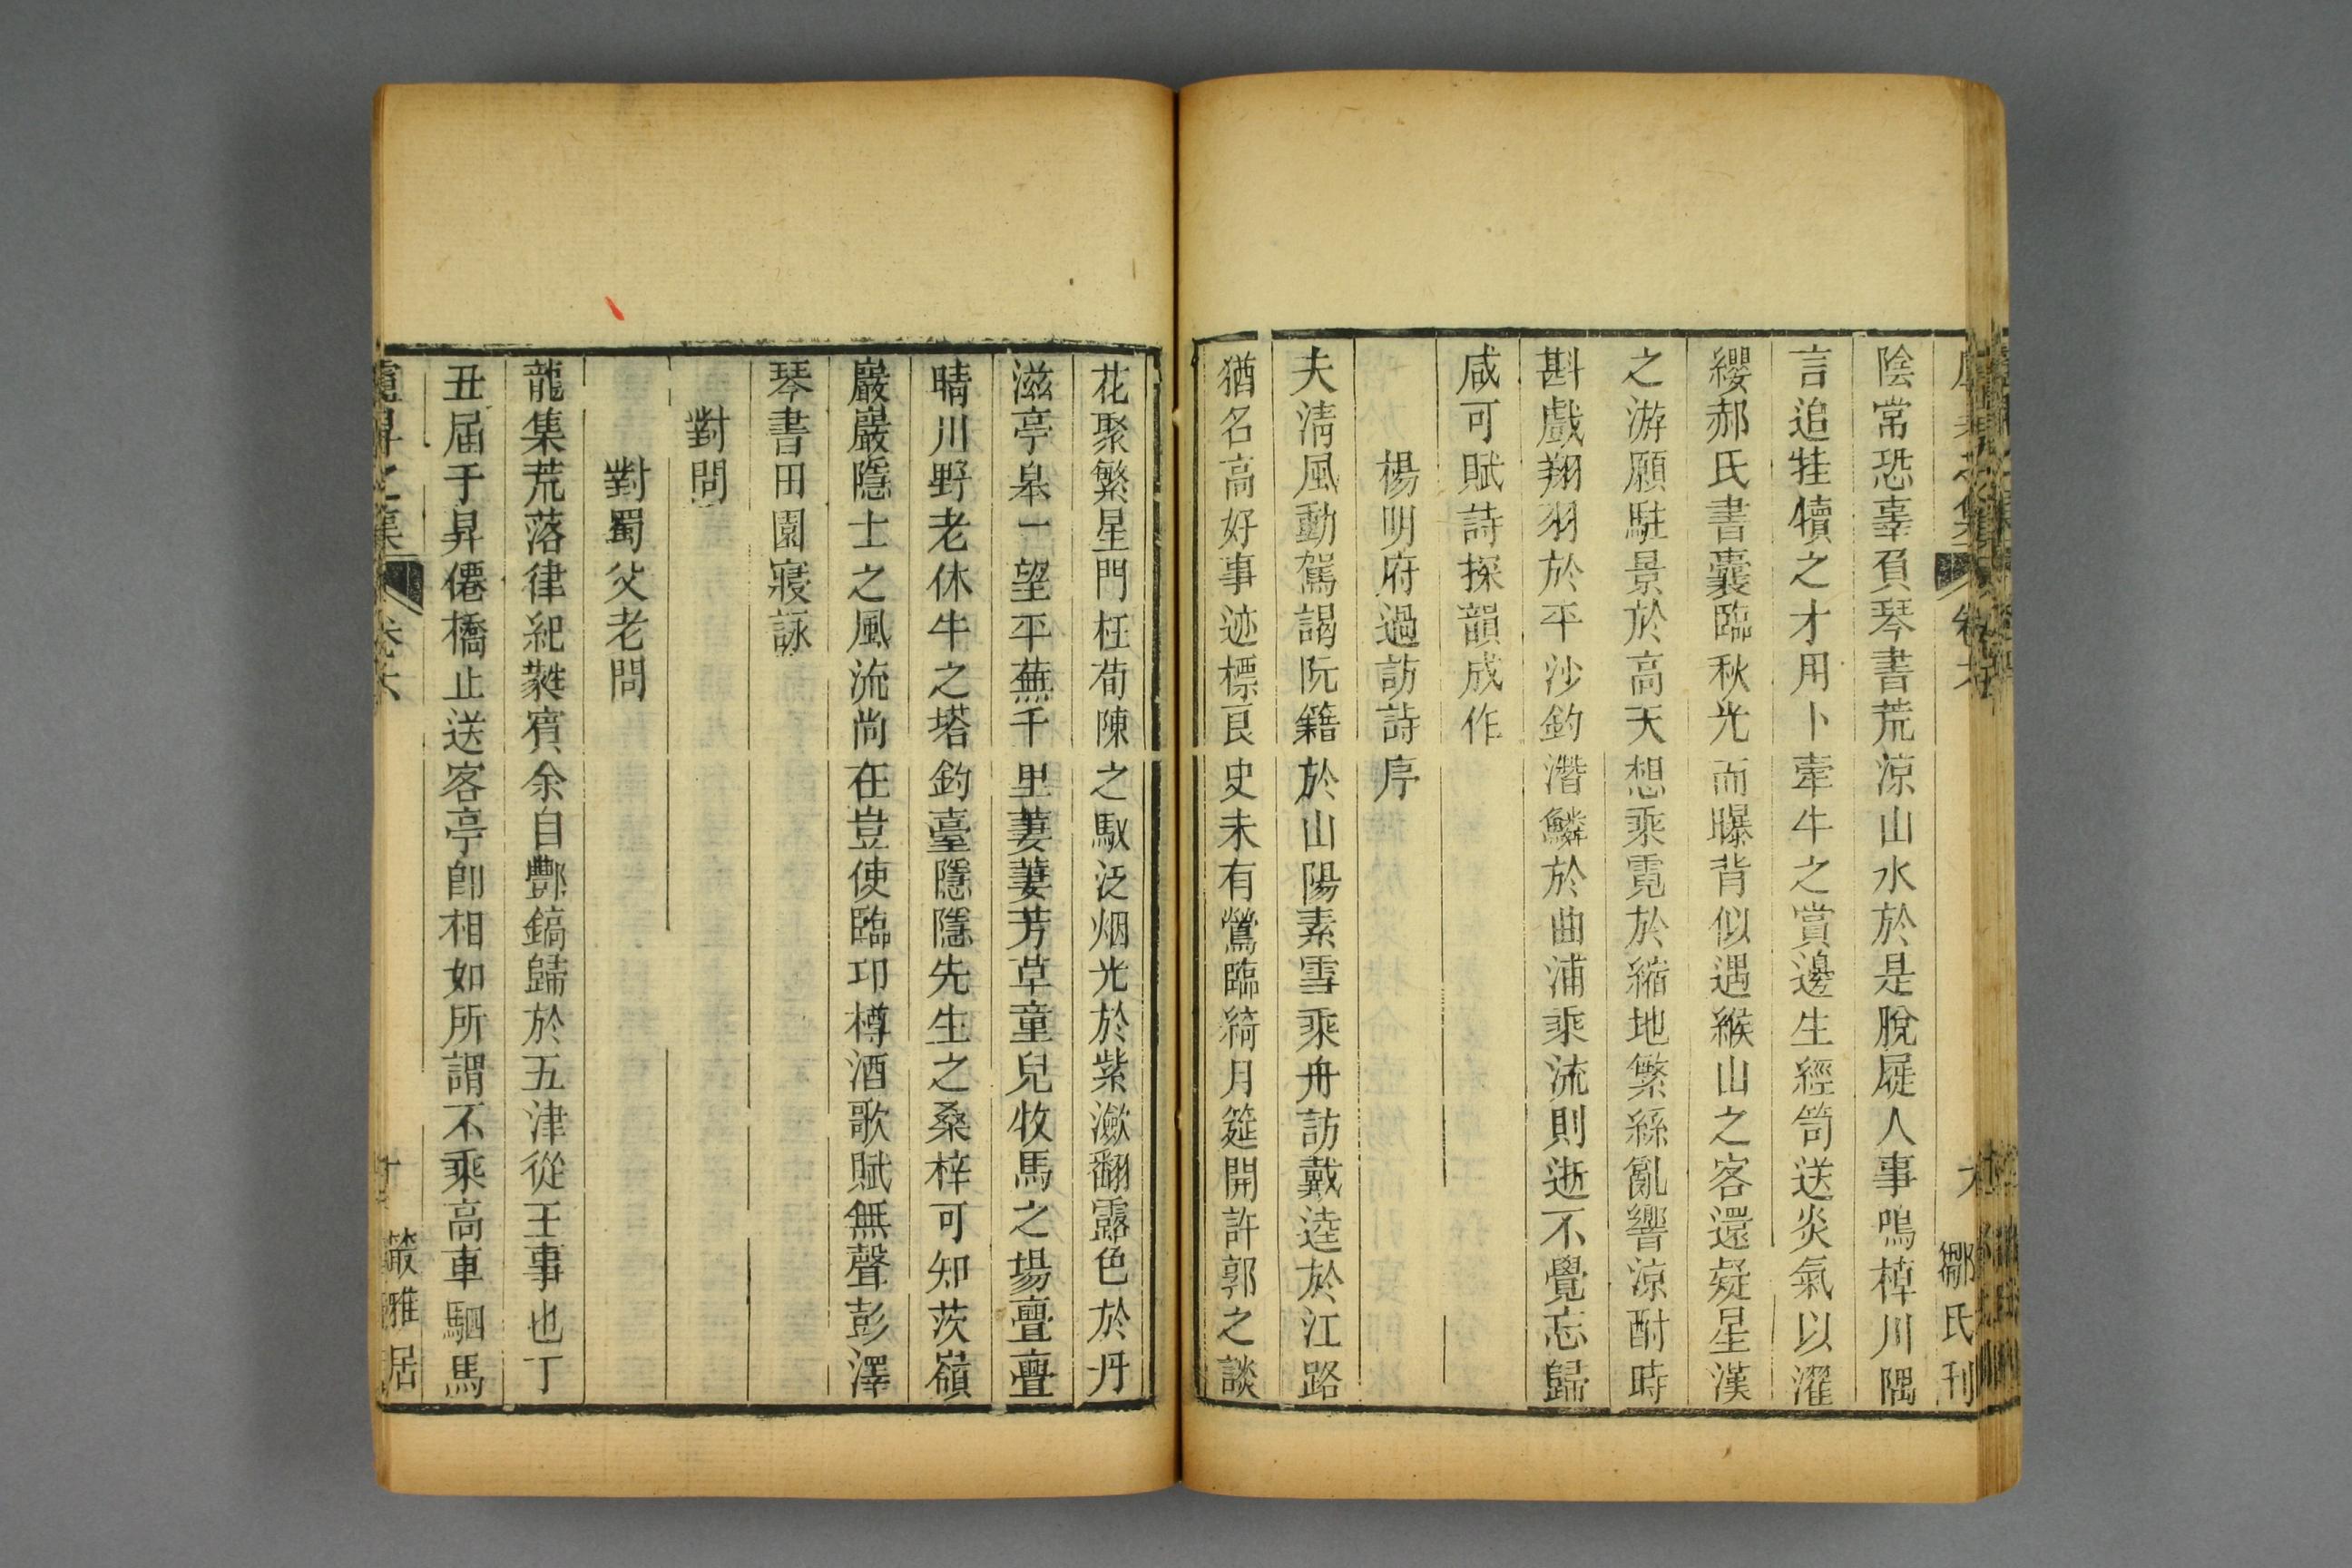 陰常恐辜負琴書荒涼山水於是脫屣人事鳴棹川隅
言追牲犢之才用卜牽牛之賞邊生經笥送炎氣以濯
纓郝氏書囊臨秋光而曝背似遇緱山之客還疑星漢
之游願駐景於高天想乘霓於縮地繁絲亂響涼酎時
斟戲翔羽於平沙釣潛鱗於曲浦乘流則逝不覺忘歸
咸可賦詩探韻成作
楊明府過訪詩序
夫清風動駕謁阮籍於山陽素雪乘舟訪戴逵於江路
猶名高好事迹標良史未有鶯臨綺月筵開許郭之談
花聚繁星門枉荀陳之馭泛烟光於紫澉翻露色於丹
滋亭皋一望平蕪千里萋萋芳草童兒牧馬之場亹亹
晴川野老休牛之塔釣臺隱隱先生之桑梓可知茨嶺
巖巖隱士之風流尚在豈使臨卭樽酒歌賦無聲彭澤
琴書田園寢詠
對問
對蜀父老問
龍集荒落律紀蕤賓余自酆鎬歸於五津從王事也丁
丑届于昇僊橋止送客亭卽相如所謂不乘高車駟馬
卷六
鄒氏刊
雅居